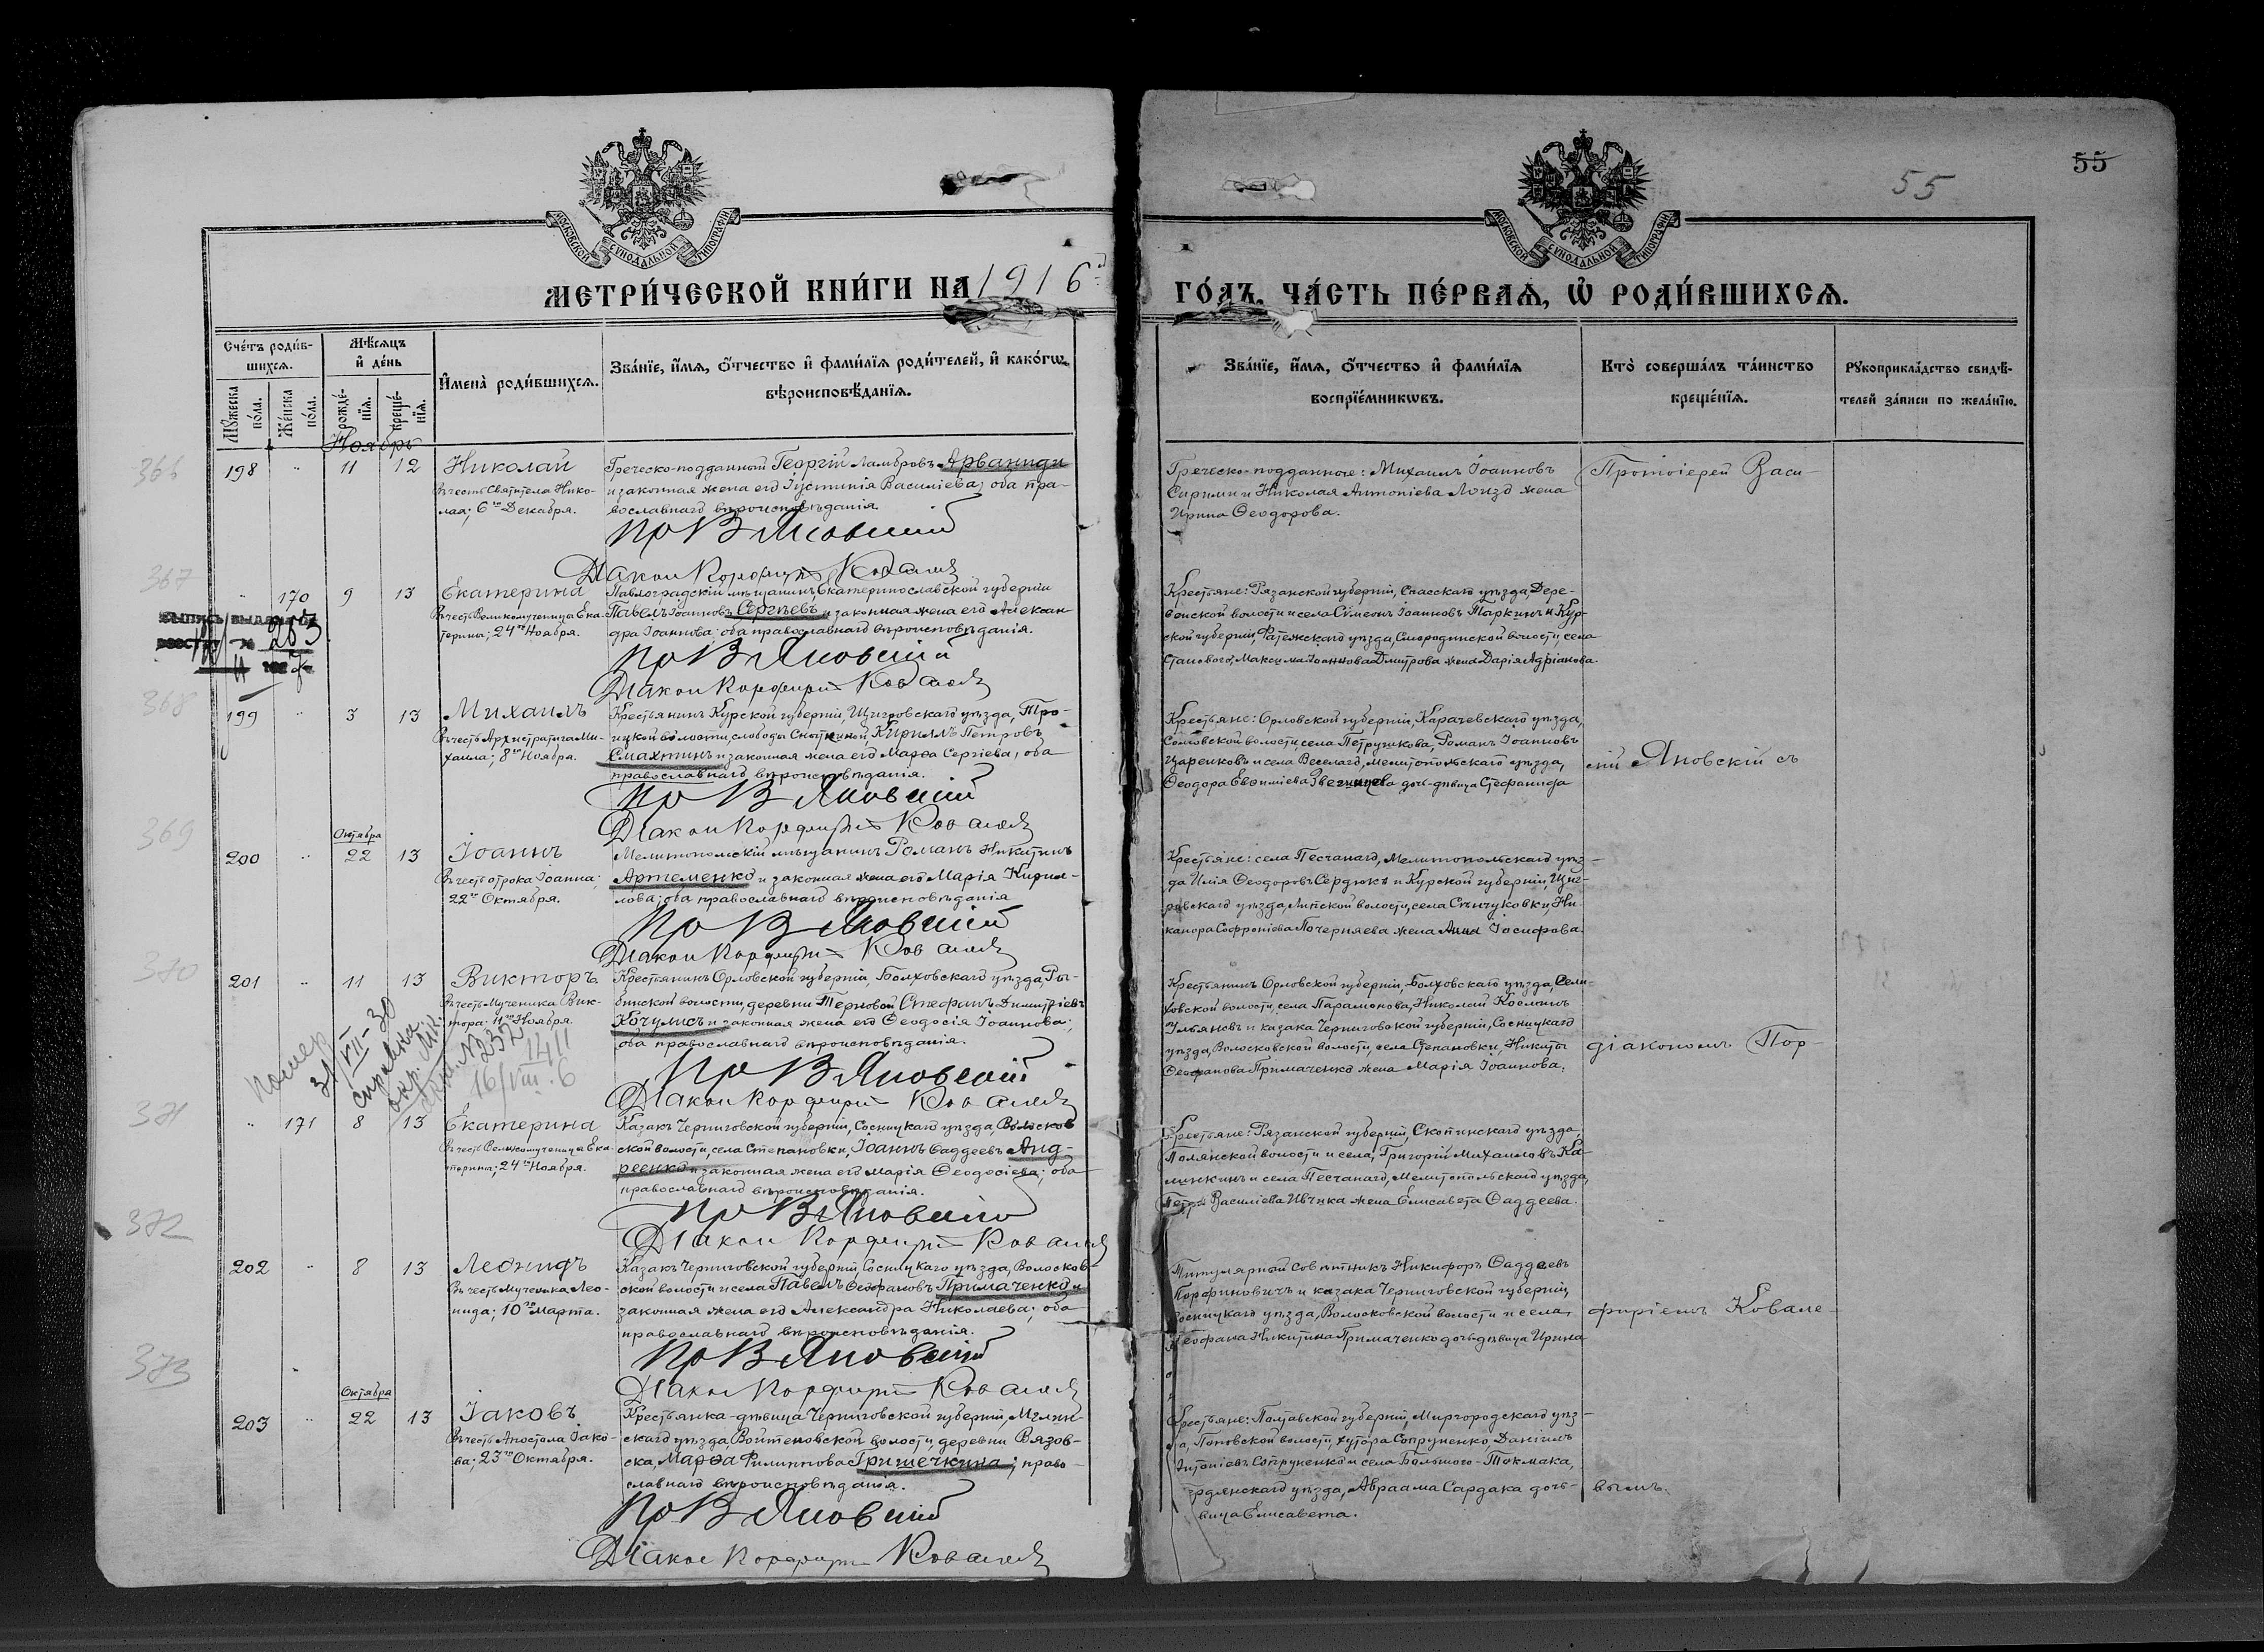 55
55
МОСКОВСКОЙ СУНОДАЛЬНОЙ ТИПОГРАФІИ
МОСКОВСКОЙ СУНОДАЛЬНОЙ ТИПОГРАФІИ
МЕТРИ́ЧЕСКОЙ КНИ́ГИ НА 1916й
ГО́ДЪ, ЧА́СТЬ ПЕ́РВАѦ, Ѽ РОДИ́ВШИХСѦ.
Сче́тъ роди́в-
шихсѧ.
Мꙋжеска по́ла.
Же́нска по́ла.
Мѣ́сѧцъ
и҆ де́нь
рожде́-нїѧ.
креще́-нїѧ.
И҆мена̀ роди́вшихсѧ.
Зва́нїе, и҆́мѧ, ѻ҆́тчество и҆ фами́лїѧ роди́телей, и҆ како́гѡ
вѣроисповѣ́данїѧ.
Зва́нїе, и҆́мѧ, ѻ҆́тчество и҆ фами́лїѧ
воспрїе́мникѡвъ.
Кто̀ соверша́лъ та́инство
креще́нїѧ.
Рꙋкоприкла́дство свидѣ́-
телей за́писи по жела́нїю.
Ноябрь
366
198 " 11 12 Николай
Въ честь Святителя Нико-
лая; 6го Декабря.
Греческо-подданный Георгій Ламбровъ Арваниди
и законная жена его Іустинія Василіева; оба пра-
вославнаго вѣроисповѣданія.
Пр В Яновскій
Діакон Порфирій Ковалевъ
Греческо-подданные: Михаилъ Іоанновъ
и Николая Антоніева жена
Ирина Ѳеодорова.
Протоіерей Васи-
367
" 170 9 13 Екатерина
Въ честь Великомученицы Ека-
терины; 24го Ноября.
Павлоградскій мѣщанинъ Екатеринославской губерніи
Павелъ Іоанновъ Сергѣевъ и законная жена его Алексан-
дра Іоаннова; оба православнаго вѣроисповѣданія.
Пр В Яновскій
Діакон Порфирій Ковалевъ
Крестьяне: Рязанской губерніи, Спасскаго уѣзда, Дере-
венской волости и села Сѵмеонъ Іоанновъ Таркинъ и Кур-
ской губерніи, Фатежскаго уѣзда, Смородинской волости, села
Становаго, Максима Іоаннова Дмитрова жена Дарія Адріанова.
выпись выдана
№ 283
368
199 " 3 13 Михаилъ
Въ честь Архистратига Ми-
хаила; 8го Ноября.
Крестьянинъ Курской губерніи, Щигровскаго уѣзда, Тро-
ицкой волости, слободы Кириллъ Петровъ
Смахтинъ и законная жена его Марѳа Сергіева; оба
православнаго вѣроисповѣданія.
Пр В Яновскій
Діакон Порфирій Ковалевъ
Крестьяне: Орловской губерніи, Карачевскаго уѣзда,
волости, села Петрушкова, Романъ Іоанновъ
Царенковъ и села Веселаго, Мелитопольскаго уѣзда,
Ѳеодора Евѳиміева дочь-дѣвица Стефанида
лій Яновскій съ
369
Октября
200 " 22 13 Іоаннъ
Въ честь отрока Іоанна;
22го Октября.
Мелитопольскій мѣщанинъ Романъ Никитинъ
Артеменко и законная жена его Марія Кирил-
лова; оба православнаго вѣроисповѣданія
Пр В Яновскій
Діакон Порфирій Ковалевъ
Крестьяне: села Песчанаго, Мелитопольскаго уѣз-
да Илія Ѳеодоровъ Сердюкъ и Курской губерніи, Щиг-
ровскаго уѣзда, Липской волости, села Сѣнчуковки, Ни-
канора Софроніева Почерняева жена Анна Іосифова.
370
201 " 11 13 Викторъ
Въ честь Мученика Вик-
тора; 11го Ноября.
Крестьянинъ Орловской губерніи, Болховскаго уѣзда, Ры-
бинской волости, деревни Терновой Стефанъ Димитріевъ
Кочулисъ и законная жена его Ѳеодосія Іоаннова;
оба православнаго вѣроисповѣданія.
Пр В Яновскій
Діакон Порфирій Ковалевъ
Крестьянинъ Орловской губерніи, Болховскаго уѣзда, Сели-
ховской волости, села Парамонова, Николай Косминъ
Ульяновъ и казака Черниговской губерніи, Сосницкаго
уѣзда, Волосковской волости, села Степановки, Никиты
Ѳеофанова Примаченко жена Марія Іоаннова.
діакономъ Пор-
Номер
31/VII-30
справка
16/VIII. 6
371
" 171 8 13 Екатерина
Въ честь Великомученицы Ека-
терины; 24го Ноября.
Казакъ Черниговской губерніи, Сосницкаго уѣзда, Волосков-
ской волости, села Степановки, Іоаннъ Ѳаддеевъ Анд-
реенко и законная жена его Марія Ѳеодосіева; оба
православнаго вѣроисповѣданія.
Пр В Яновскій
Діакон Порфирій Ковалевъ
Крестьяне: Рязанской губерніи, Скопинскаго уѣзда,
Полянской волости и села, Григорій Михаиловъ Ка-
линкинъ и села Песчанаго, Мелитопольскаго уѣзда,
Петра Василіева Ивчика жена Елисавета Ѳаддеева.
372
202 " 8 13 Леонидъ
Въ честь Мученика Лео-
нида; 10го Марта.
Казакъ Черниговской губерніи, Сосницкаго уѣзда, Волосков-
ской волости и села Павелъ Ѳеофановъ Примаченко и
законная жена его Александра Николаева; оба
православнаго вѣроисповѣданія.
Пр В Яновскій
Діакон Порфирій Ковалевъ
Титулярный Совѣтникъ Никифоръ Ѳаддеевъ
Порфиновичъ и казака Черниговской губерніи,
Сосницкаго уѣзда, Волосковской волости и села,
Ѳеофана Никитина Примаченко дочь-дѣвица Ирина
фиріемъ Ковале-
373
Октября
203 " 22 13 Іаковъ
Въ честь Апостола Іако-
ва; 23го Октября.
Крестьянка-дѣвица Черниговской губерніи, Мглин-
скаго уѣзда, Войтеновской волости, деревни Вязов-
ска, Марѳа Филиппова Гришечкина; право-
славнаго вѣроисповѣданія.
Пр В Яновскій
Діакон Порфирій Ковалевъ
Крестьяне: Полтавской губерніи, Миргородскаго уѣз-
да, Поповской волости, хутора Сопруненко, Даніилъ
Антоніевъ Сопруненко и села Большого-Токмака,
рдянскаго уѣзда, Авраама Сардака дочь-
вица Елисавета.
вымъ.